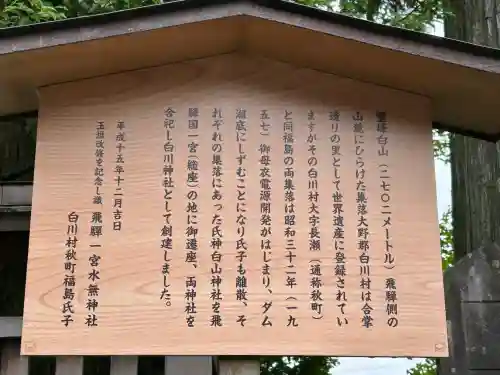 霊峰白山（二七〇二メートル）飛騨側の
山麓にひらけた集落大野郡白川村は合掌
造りの里として世界遺産に登録されてい
ますがその白川村大字長瀬（通称秋町）
と同福島の両集落は昭和三十二年（一九
五七）御母衣電源開発がはじまり、ダム
湖底にしずむことになり氏子も離散、そ
れぞれの集落にあった氏神白山神社を飛
騨国一宮（舩座）の地に御遷座、両神社を
合祀し白川神社として創建しました。
平成十五年十二月吉日
玉垣改修を記念し識
飛騨一宮水無神社
白川村秋町福島氏子